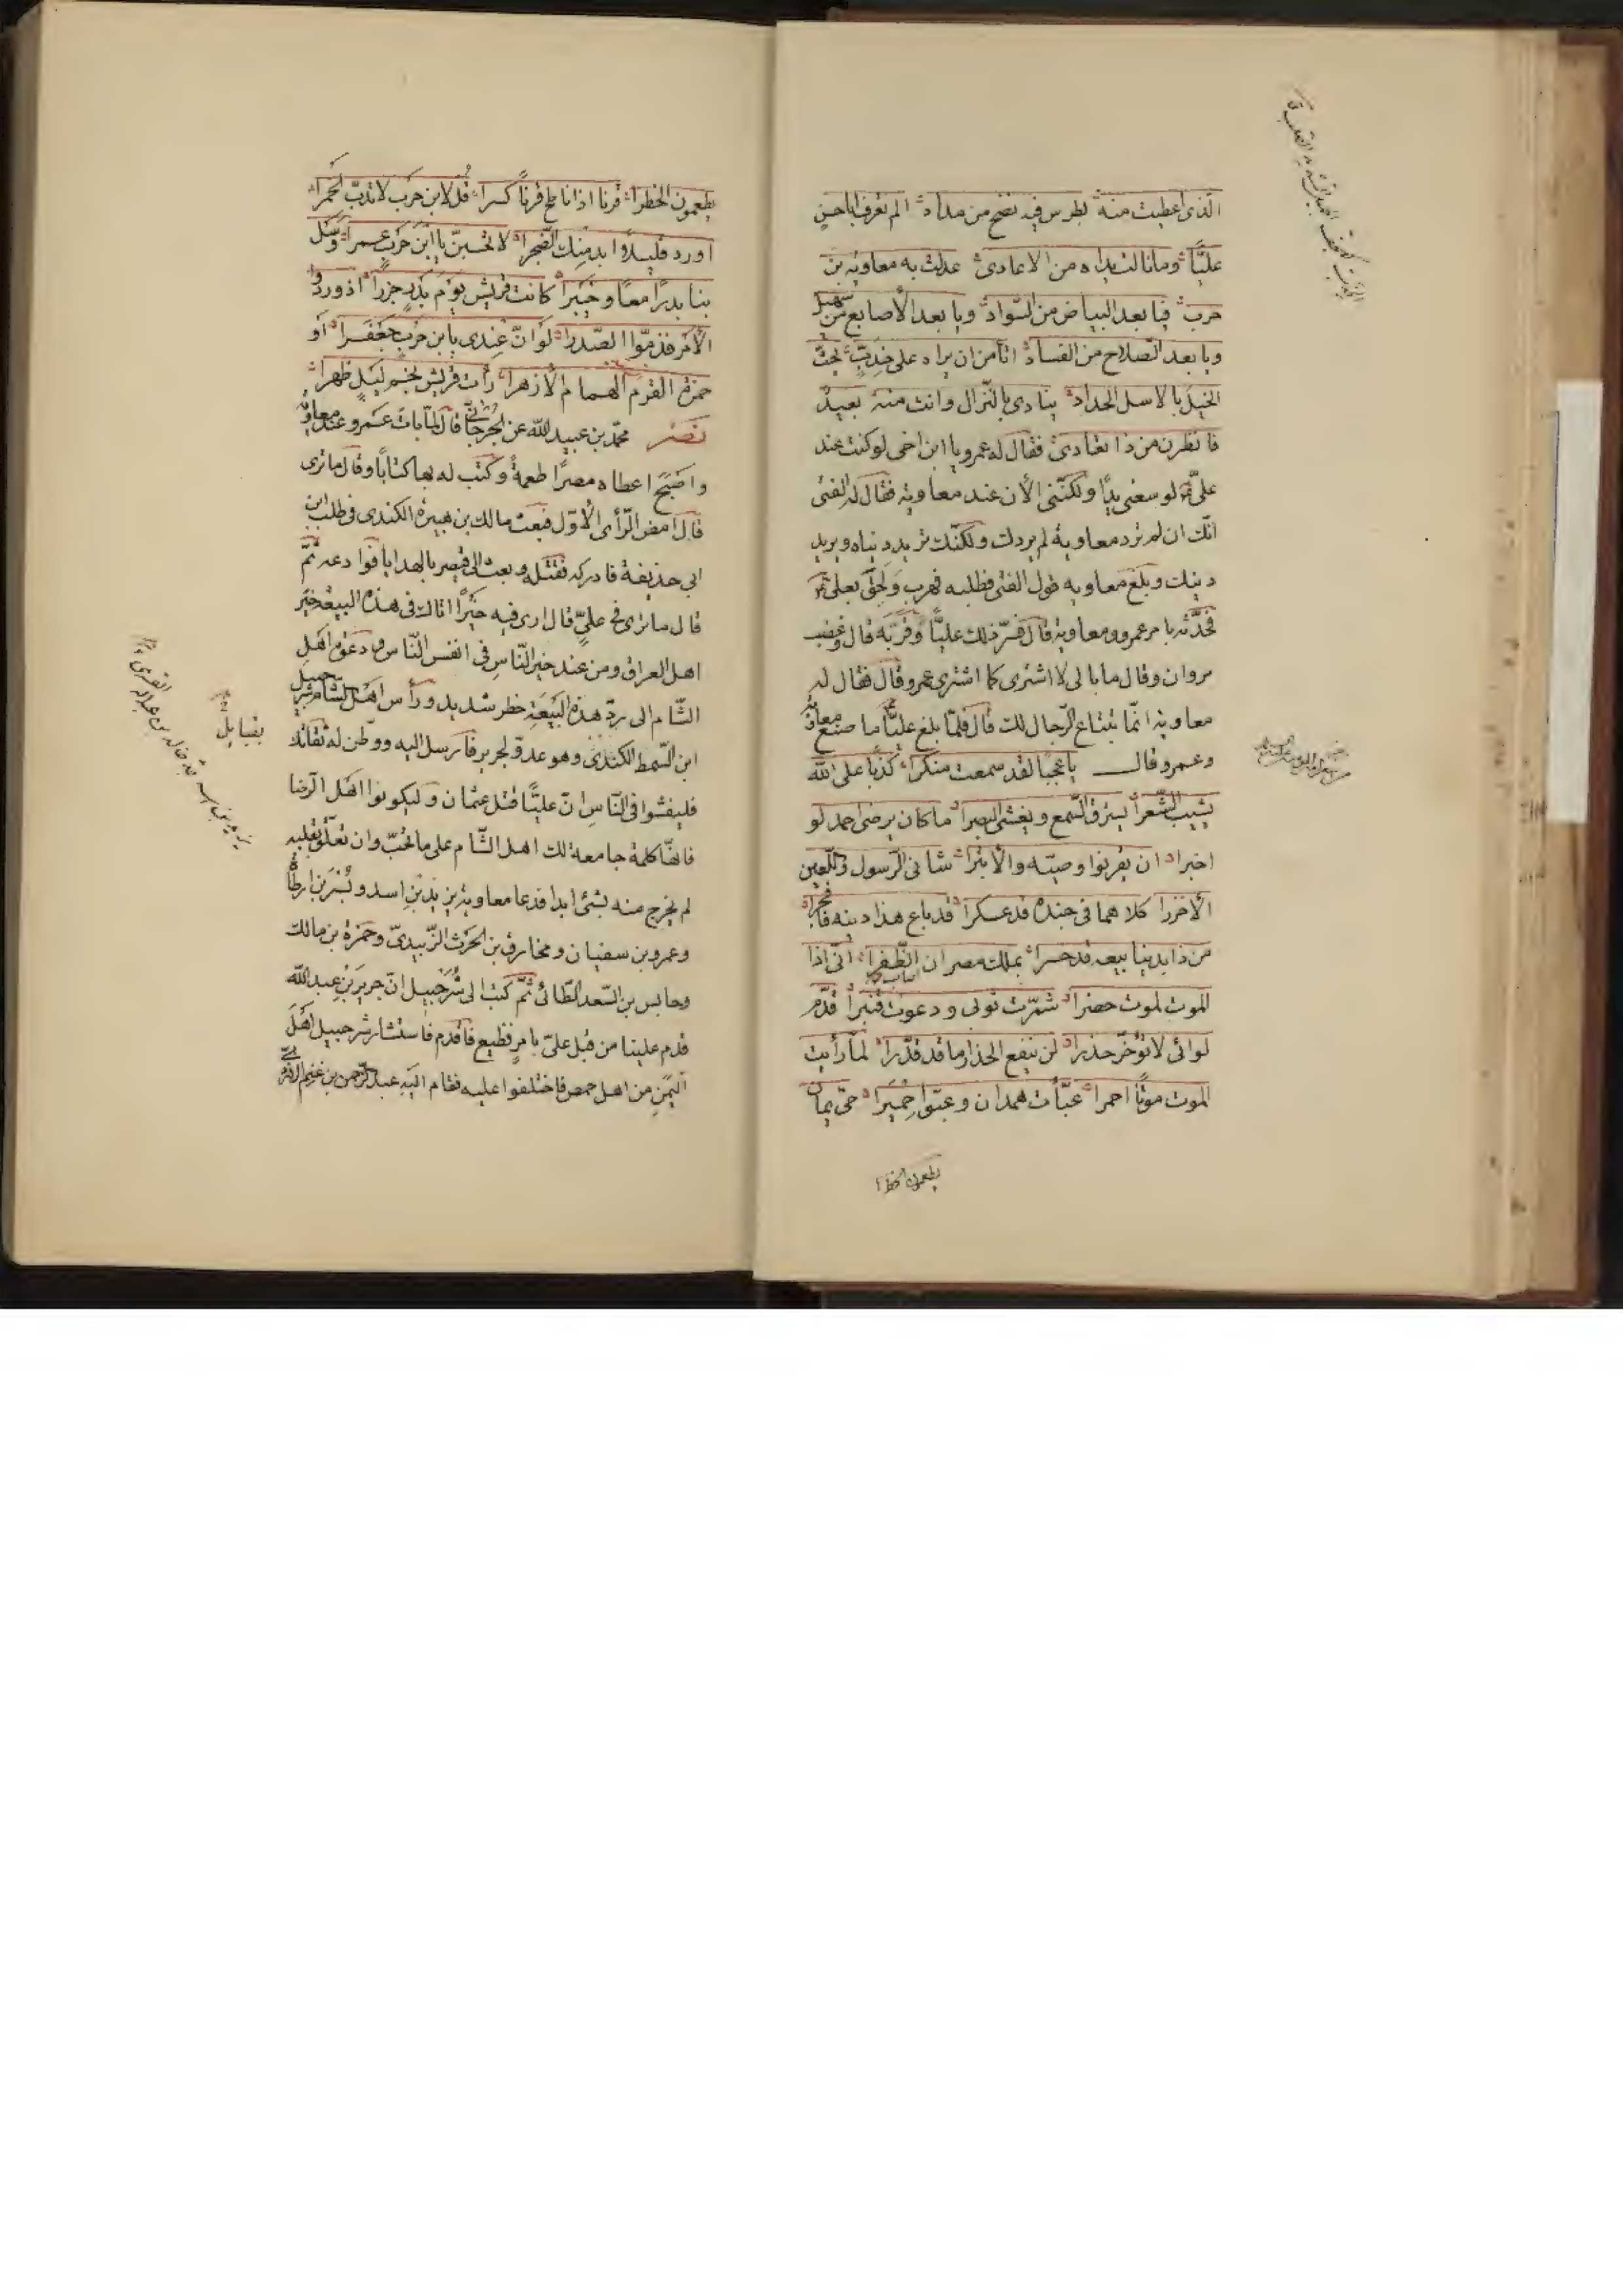 الذى اعطيت منه بطرس فيه نضح من مداد الم تعرف ابا حسن
عليّا وما نالت يداه من الاعادى عدلت به معاوية بن
حرب فيا بعد البياض من السّواد ويا بعد الأصابع من سهيل
ويا بعد الصّلاح من الفساد اتأمن ان يراه على خدبّ يحثّ
الخيل بالاسل الحداد ينادى بالنّزال وانت منه بعيد
فانظرن من ذا تعادى فقال له عمرو يا ابن اخى لو كنت عند
علىّ لوسعنى بيتى ولكنّنى الأن عند معاوية فقال له الفتى
انّك ان لم ترد معاوية لم يردك ولكنّك تريد دنياه ويريد
دينك وبلغ معاوية قول الفتى فطلبه فهرب ولحق بعلى
فحدّثه بامر عمرو ومعاوية قال فسرّ ذلك عليّا وقرّبه قال وغضب
مروان وقال ما بالى لا اشترى كما اشترى عمرو قال فقال له
معاوية انّما تبتاع الرّجال لك قال فلمّا بلغ عليّا ما صنع معاوية
وعمرو قال يا عجبًا لقد سمعت منكرا كذبًا على الله
يشيب الشّعرا يسترق السّمع ويغشى البصرا ما كان يرضى احمد لو
اخبرا ان يقرنوا وصيّه والأبترا شانى الرّسول واللّعين
الأخزرا كلاهما فى جنده قد عسكرا قد باع هذا دينه فافجرا
من ذا بدنيا بيعه قد خسرا بملك مصر ان اصاب الظّفرا انّى اذا
الموت لموت حضرا شمّرت ثوبى ودعوت قنبرا قدّم
لوائى لا تؤخّر حذرا لن ينفع الحذار ما قد قدّرا لمّا رأيت
الموت موتًا احمرا عبّأت همدان وعبّوا حميرا حىّ يمان
يطعمون الخطرا
يطعمون الخطرا قرنا اذا ناطح قرنًا كسرا قل لابن حرب لا تدبّ الخمرا
اورد قليلاً ابد منك الضّجرا لا تحسبنّ يا ابن حرب عمرا وسل
بنا بدرًا معًا وخيبرا كانت قريش يوم بدر جزرا اذ وردوا
الأمر فذمّوا الصّدرا لو انّ عندى يا بن حرب جعفرا او
حمزة القرم الهمام الأزهرا رأت قريش نجم ليل ظهرا
نصر محمّد بن عبيد الله عن الجرجانى قال لمّا بات عمرو عند معاوية
واصبح اعطاه مصرًا طعمة وكتب له بها كتابًا وقال ما ترى
قال امض الرّأى الأوّل فبعث مالك بن هبيرة الكندى فى طلب ابن
ابى حذيفة فادركه فقتله وبعث الى قيصر بالهدايا فوادعه ثمّ
قال ما ترى فى علىّ قال ارى فيه خيرًا اتاك فى هذه البيعة خير
اهل العراق ومن عند خير النّاس فى انفس النّاس ودعوة اهل
الشّام الى ردّ هذه البيعة خطر شديد ورأس اهل الشام شرحبيل
ابن السّمط الكندى وهو عدوّ لجرير فارسل اليه ووطّن له ثقاتك
فليفشوا فى النّاس انّ عليّا قتل عثمان وليكونوا اهل الرّضا
فانّها كلمة جامعة لك اهل الشّام على ما تحبّ وان تعلّق بقلبه
لم يخرج منه بشئ ابدا فدعا معاوية يزيد بن اسد وبسر بن ارطاة
وعمرو بن سفيان ومخارق بن الحرث الزّبيدىّ وحمزة بن مالك
وحابس بن السّعد الطّائى ثمّ كتب الى شرحبيل انّ جرير بن عبد الله
قدم علينا من قبل علىّ بامر فظيع فاقدم فاستشار شرحبيل اهل
اليمن من اهل حمص فاختلفوا عليه فقام اليه عبد الرّحمن بن غنم الازدى